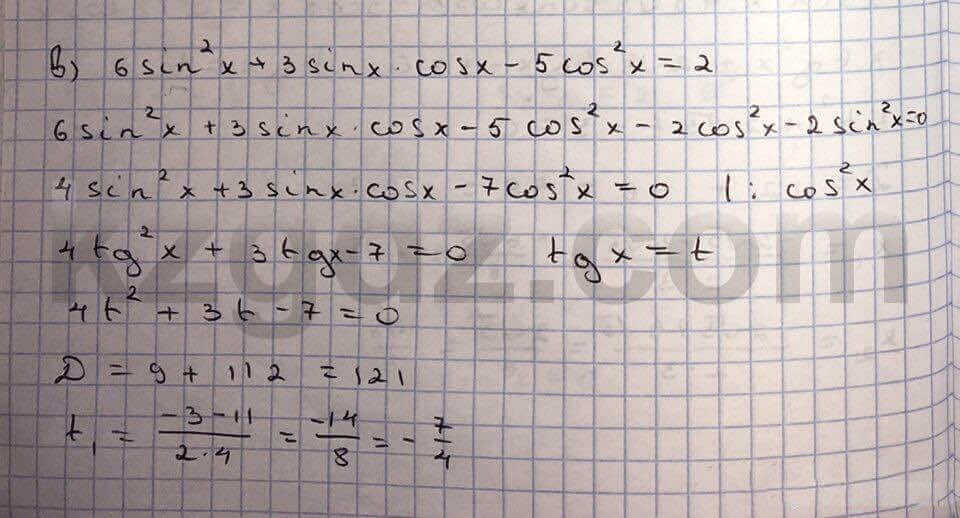 в) 6 sin²x + 3 sinx · cosx − 5 cos²x = 2
6 sin²x + 3 sinx · cosx − 5 cos²x − 2 cos²x − 2 sin²x = 0
4 sin²x + 3 sinx · cosx − 7 cos²x = 0 | : cos²x
4 tg²x + 3 tgx − 7 = 0 tg x = t
kzgdz.com
4t² + 3t − 7 = 0
D = 9 + 112 = 121
t₁ = (−3 − 11)/(2·4) = −14/8 = −7/4